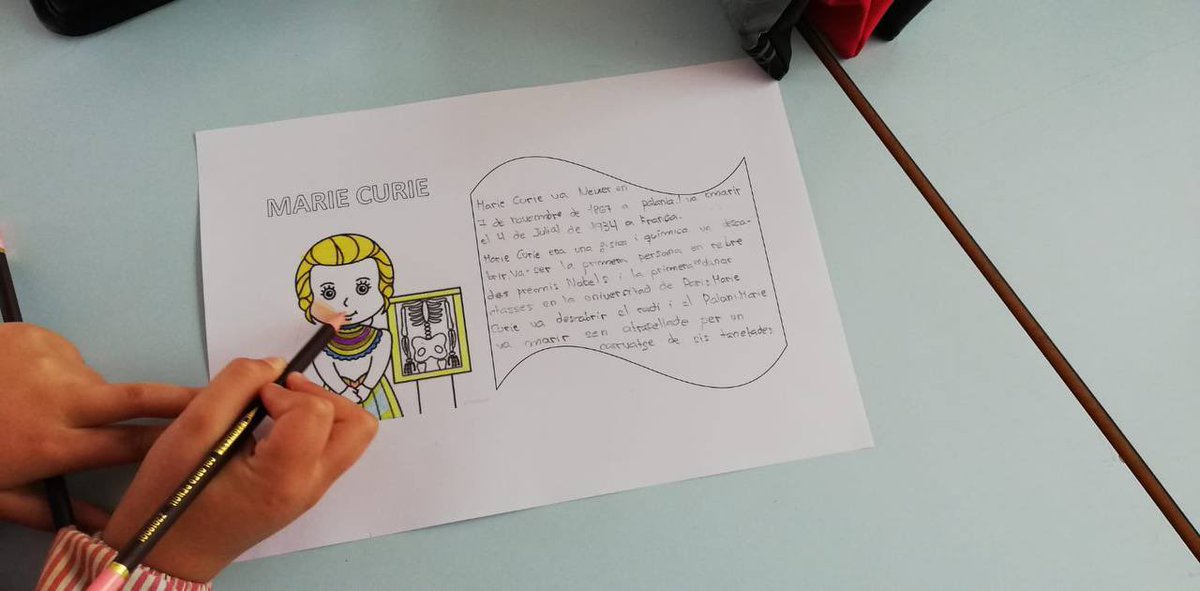 MARIE CURIE
Marie Curie va Neixer en
7 de novembre de 1867 a polonia i va morir
el 4 de Juliol de 1934 a França.
Marie Curie era una física i química va desco-
brir va ser la primera persona en rebre
dos premis Nobels i la primera en donar
classes en la universitad de Paris. Marie
Curie va descobrir el radi i el Poloni. Marie
va morir sen atropellada per un
carruatge de sis tonelades